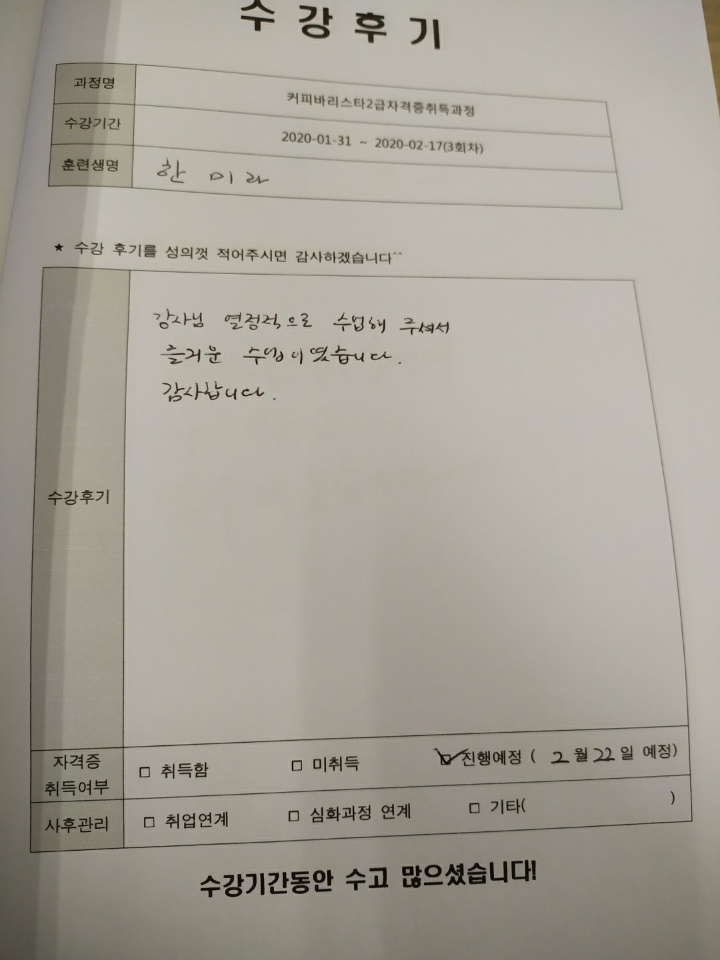 수강후기
과정명 커피바리스타2급자격증취득과정
수강기간 2020-01-31 ~ 2020-02-17(3회차)
훈련생명 한미라
★ 수강 후기를 성의껏 적어주시면 감사하겠습니다^^
강사님 열정적으로 수업해 주셔서
즐거운 수업이였습니다.
감사합니다.
수강후기
자격증 취득여부 □ 취득함 □ 미취득 ☑ 진행예정 ( 2월 22일 예정)
사후관리 □ 취업연계 □ 심화과정 연계 □ 기타( )
수강기간동안 수고 많으셨습니다!